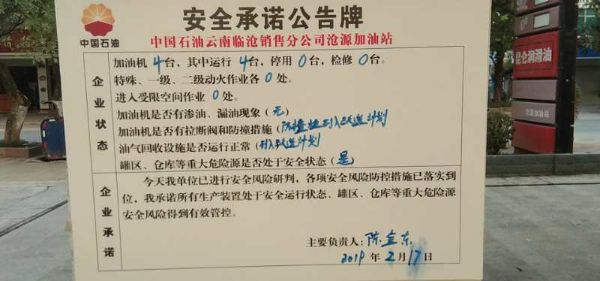 安全承诺公告牌
中国石油
中国石油云南临沧销售分公司沧源加油站
企业状态
加油机4台，其中运行4台，停用0台，检修0台。
特殊、一级、二级动火作业各0处。
进入受限空间作业0处。
加油机是否有渗油、漏油现象（无）
加油机是否有拉断阀和防撞措施（防撞柱列入改造计划
油气回收设施是否运行正常（列入改造计划
罐区、仓库等重大危险源是否处于安全状态（是）
企业承诺
今天我单位已进行安全风险研判，各项安全风险防控措施已落实到
位，我承诺所有生产装置处于安全运行状态、罐区、仓库等重大危险源
安全风险得到有效管控。
主要负责人：陈金东
2019年2月17日
昆仑润滑油